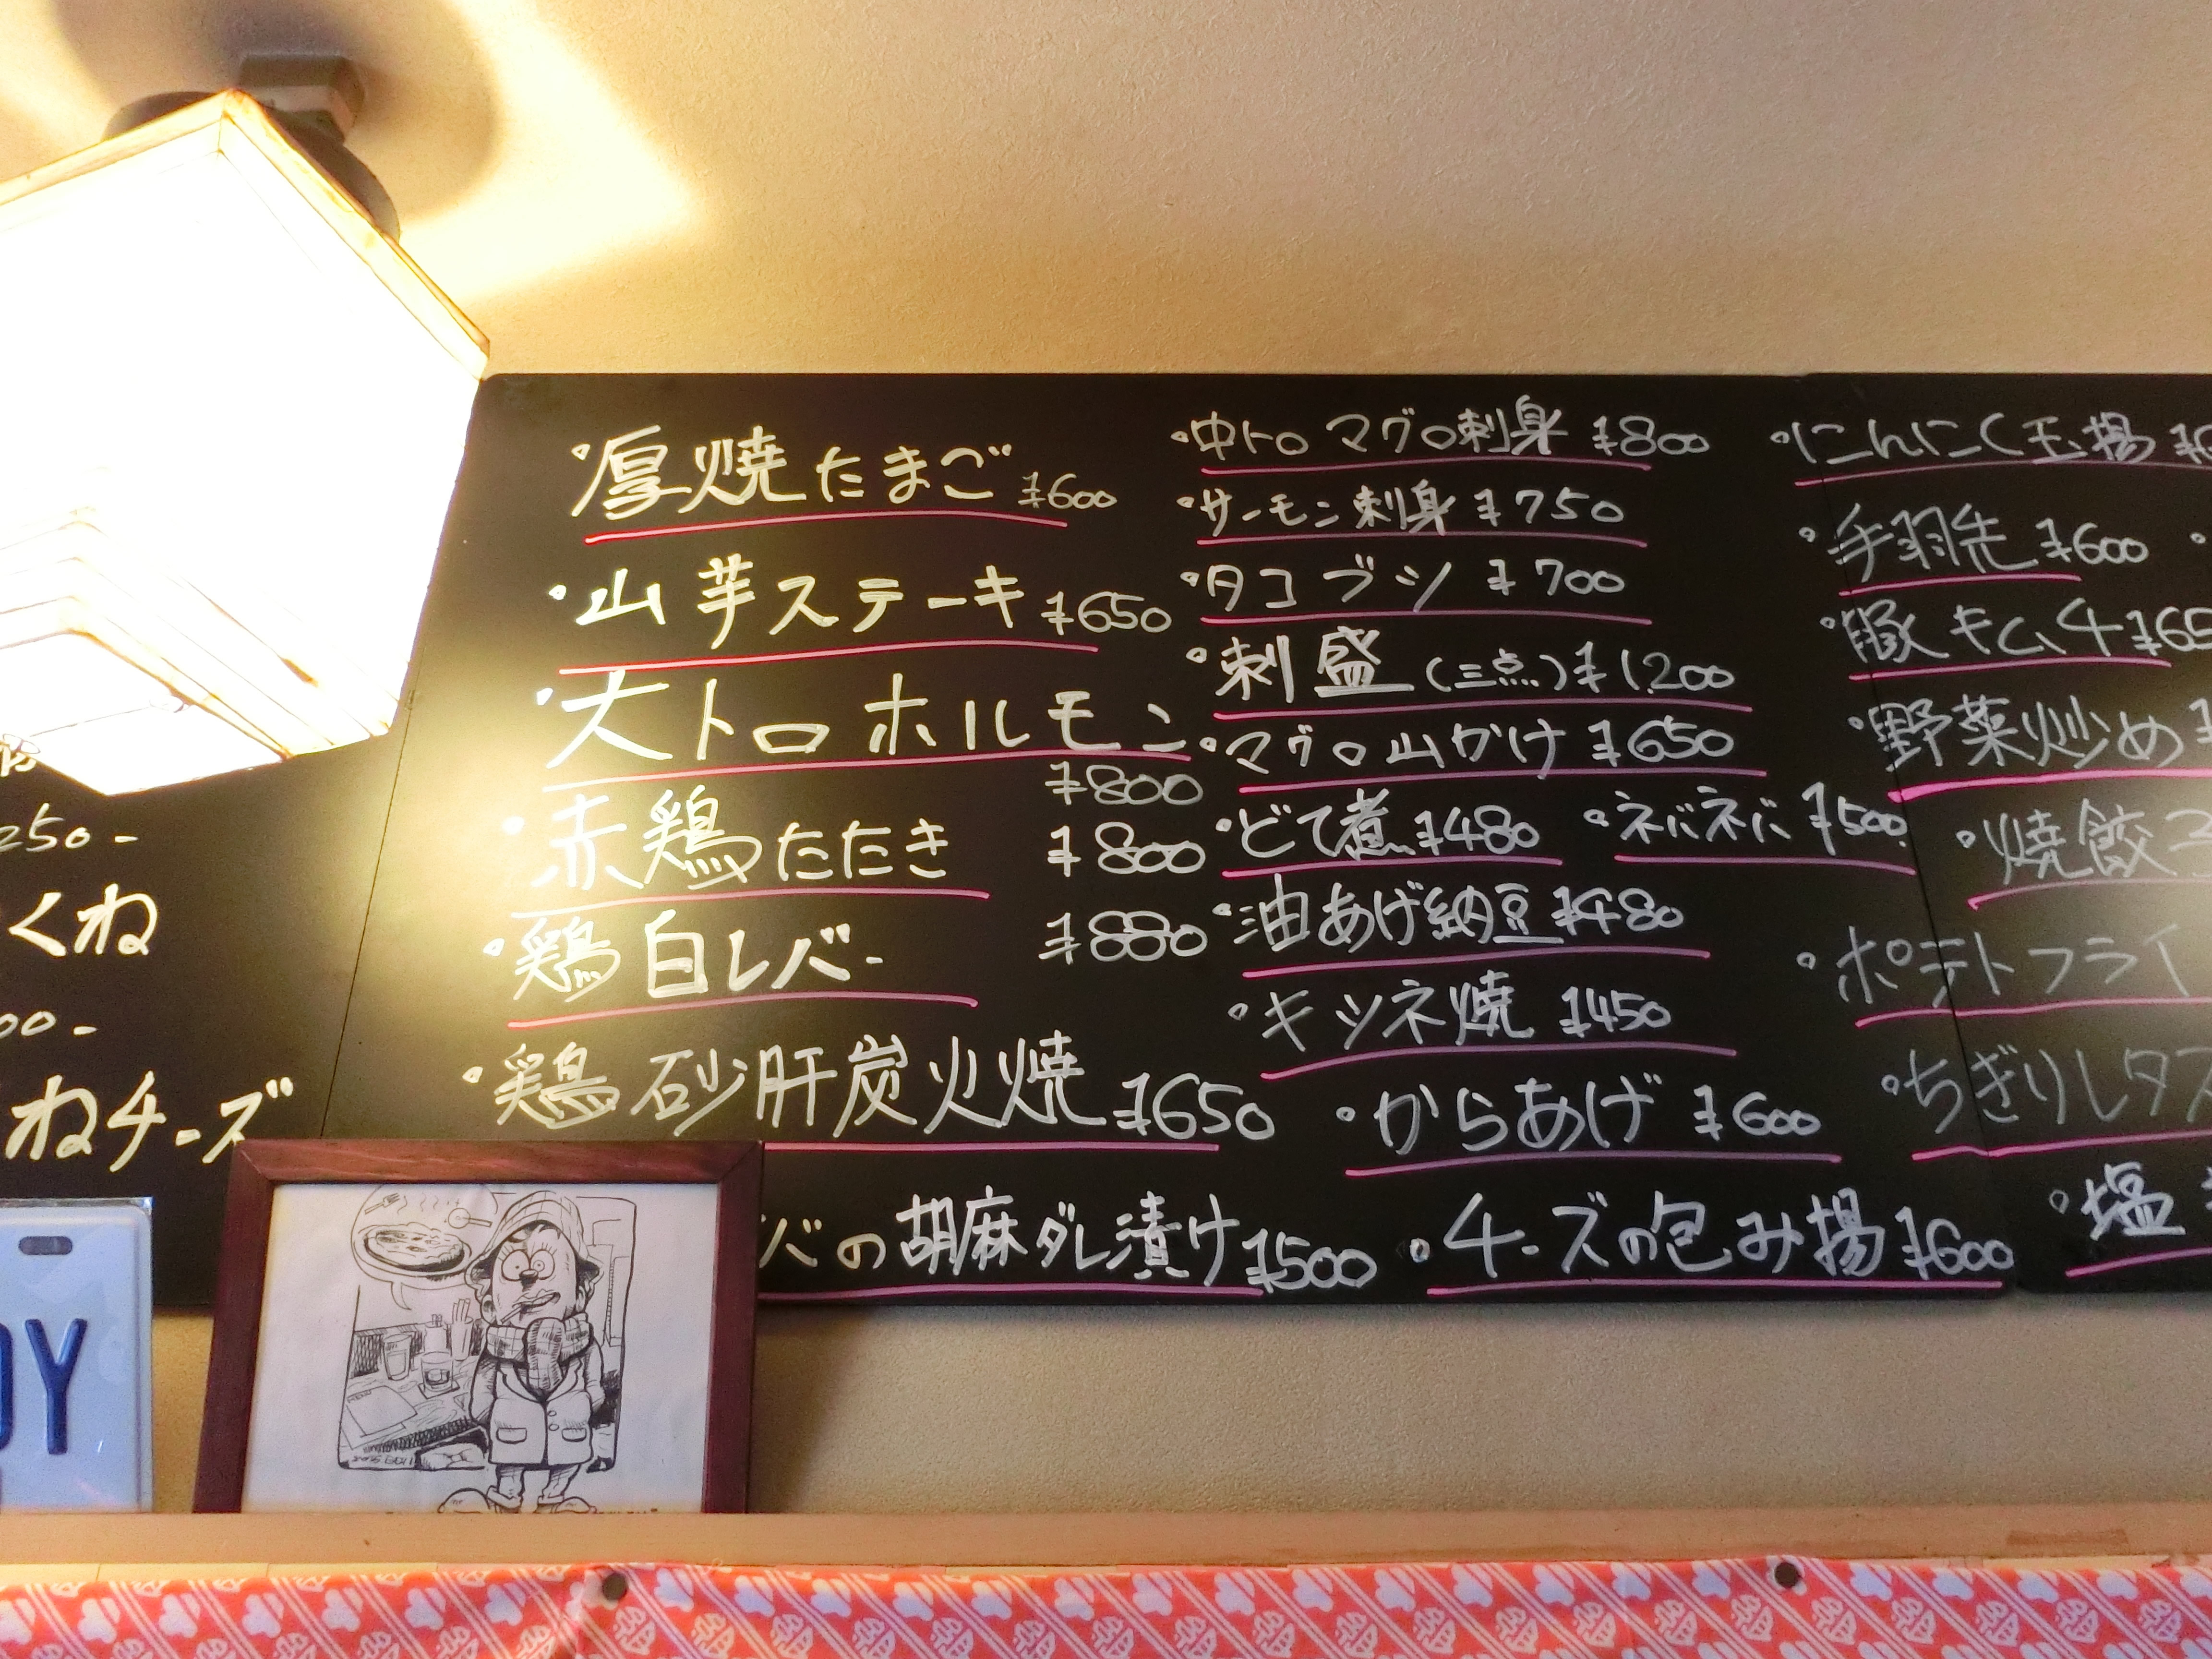 250-
くね
00-
ねチーズ
OY
・厚焼たまご ¥600
・山芋ステーキ ¥650
・大トロホルモン
¥800
・赤鶏たたき ¥800
・鶏白レバー ¥880
・鶏砂肝炭火焼 ¥650
バの胡麻ダレ漬け ¥500
・中トロマグロ刺身 ¥800
・サーモン刺身 ¥750
・タコブツ ¥700
・刺盛(三点) ¥1200
・マグロ山かけ ¥650
・どて煮 ¥480 ・ネバネバ ¥500
・油あげ納豆 ¥480
・キツネ焼 ¥450
・からあげ ¥600
・チーズの包み揚 ¥600
・にんにく玉揚
・手羽先 ¥600
・豚キムチ ¥65
・野菜炒め
・焼餃子
・ポテトフライ
・ちぎりレタス
・塩